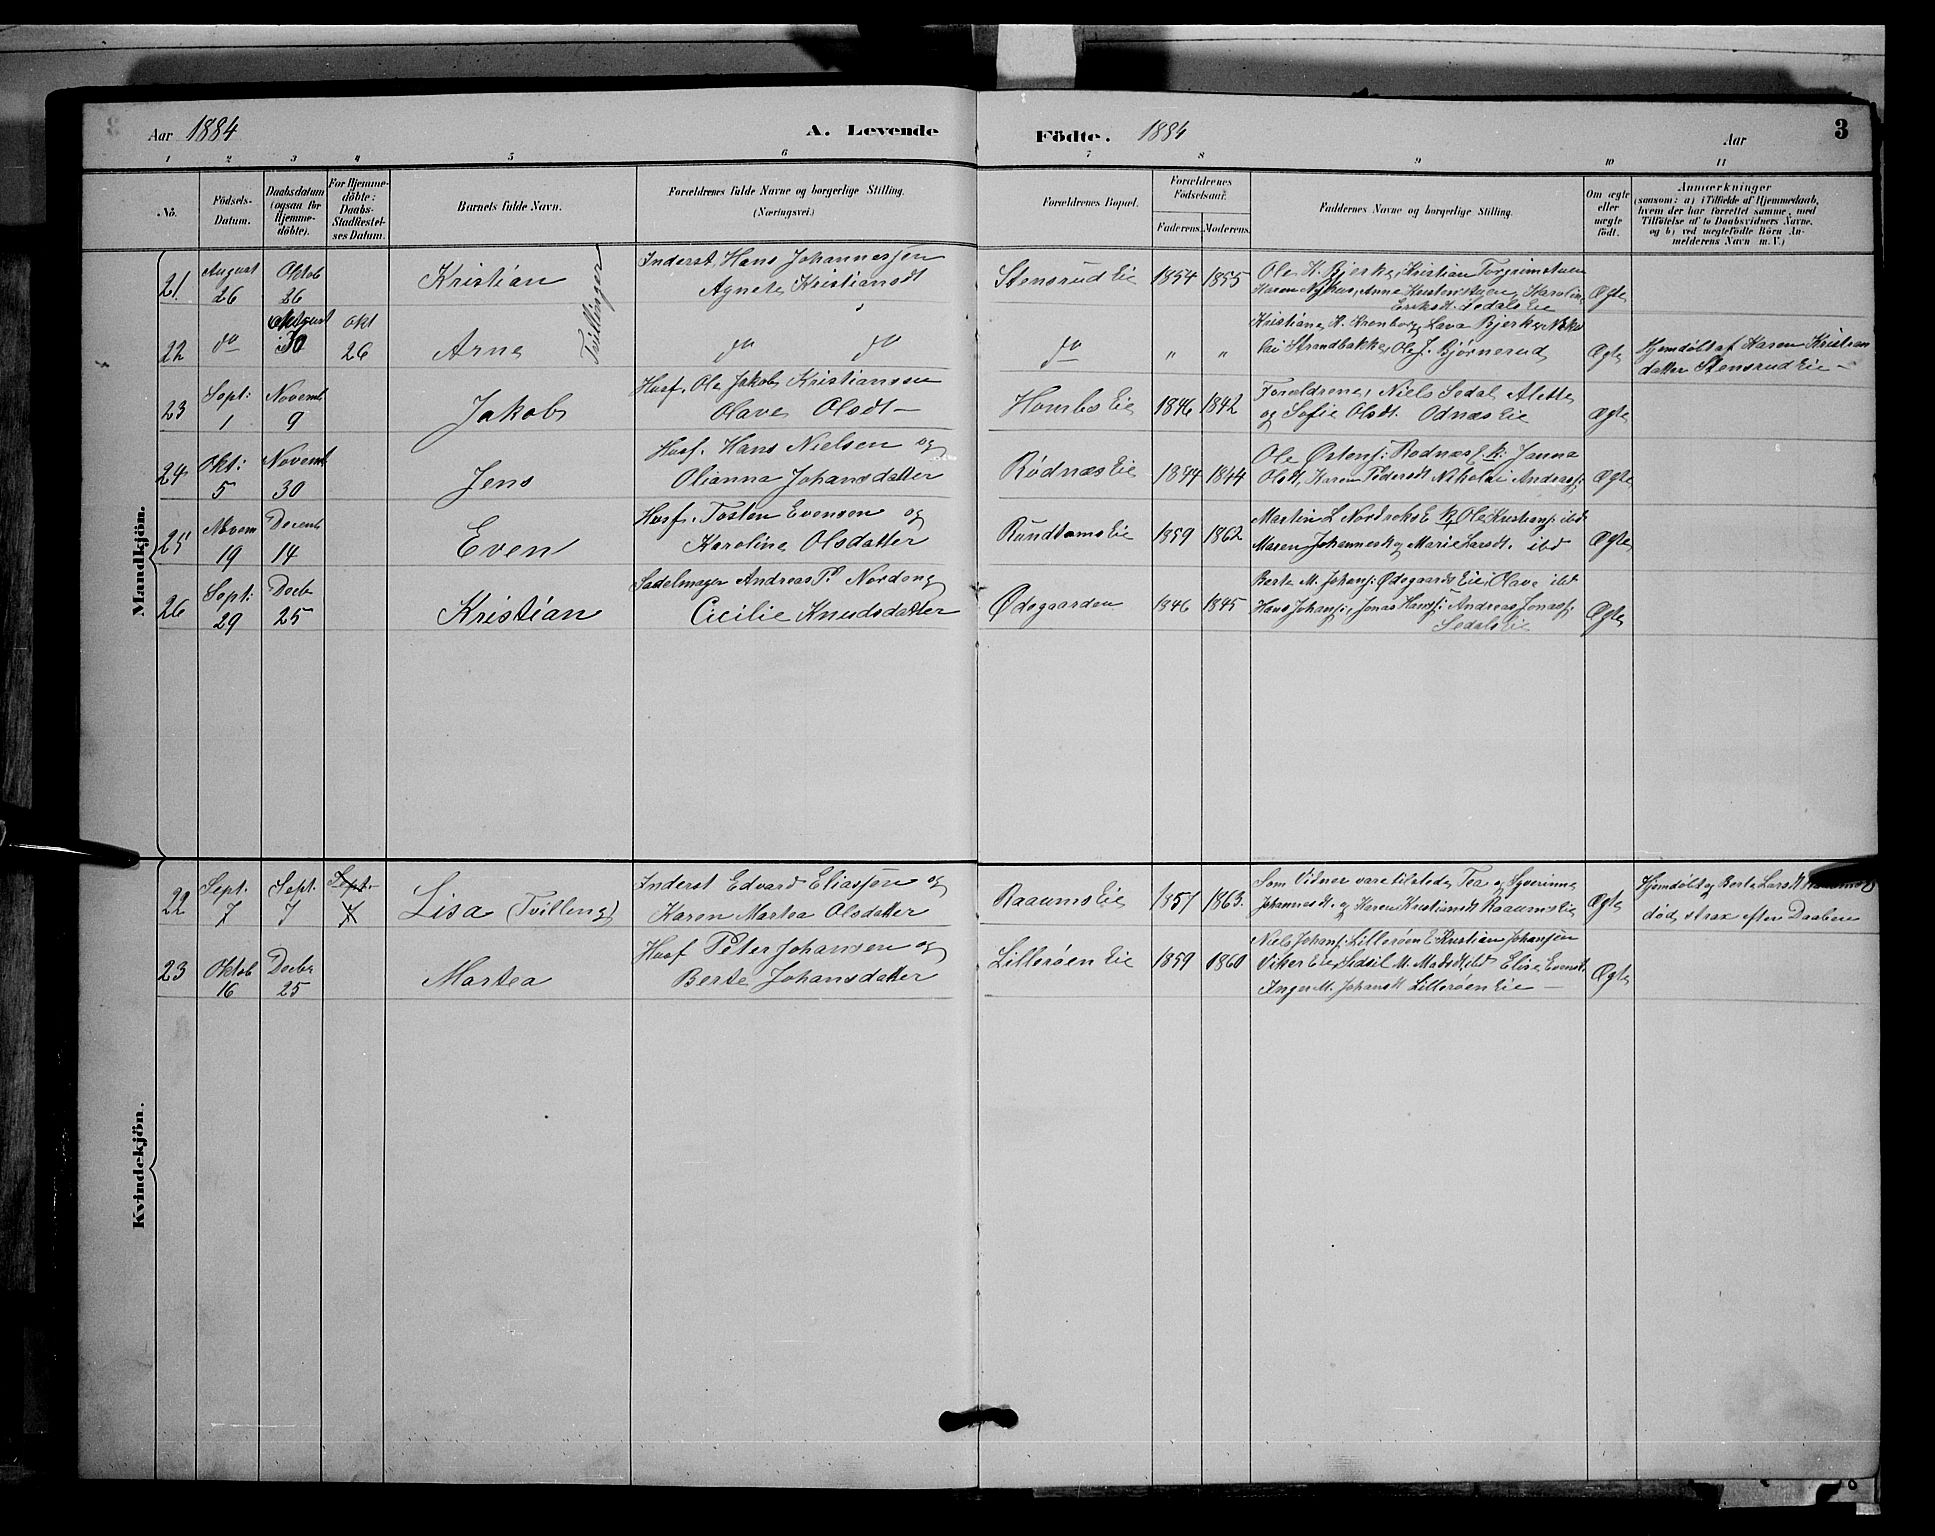 Aar 1884 A. Levende Födte. 1884 Aar 3
1 2 3 4 5 6 7 8 9 10 11
No. Födsels-Datum. Daabsdatum (ogsaa for Hjemmedöbte). For Hjemmedöbte: Daabs-Stadfæstelses Datum. Barnets fulde Navn. Forældrenes fulde Navne og borgerlige Stilling. (Næringsvei.) Forældrenes Bopæl. Forældrenes Födselsaar. Faderens. Moderens. Faddernes Navne og borgerlige Stilling. Om ægte eller uægte födt. Anmærkninger (saasom: a) i Tilfælde af Hjemmedaab, hvem der har forrettet samme, med Tilföielse af to Daabsvidners Navne, og b) ved uægtefödte Börn Anmelderens Navn m. V.)
Mandkjön.
21 August 26 Oktob 26 Kristian Tvillinger
Inderst Hans Johannesjen
Agnete Kristiansdt
Stensrud Eie 1854 1855
Ole K. Bjerke, Kristian Torgrimstuen
Karen Nyhus, Anne Kristenstuen, Karoline
Eriksdt. Sedals Eie
Ægte
22 do 30 Okt 26 Arne
do do
do " "
Kristiane K. Kronborg, Lava Bjerke, Niko
lai Strandbakke, Ole J. Bjørnerud
Ægte
Hjemdøbt af Karen Kristian
datter Stensrud Eie
23 Sept: 1 Novemb 9 Jakob
Husf. Ole Jakob Kristianssen
Olave Olsdt
Hombs Eie 1846 1842
Forældrene, Niels Sedal, Alette
og Sofie Olsdt. Odnæs Eie
Ægte
24 Okt: 5 Novemb 30 Jens
Husf. Hans Nielsen og
Olianna Johansdatter
Rødnæs Eie 1844 1844
Ole Østensj: Rodnæs f. k: Janna
Olsdt, Karen Pedersdt Nikolai Andreasj:
Ægte
25 Novem 19 Decemb 14 Even
Husf. Tosten Evensen og
Karoline Olsdatter
Rundtoms Eie 1859 1862
Martin L Nordraks E k, Ole Kristiansj: ibd
Maren Johannesdt og Marie Larsdt. ibd
Ægte
26 Sept: 29 Decbr 25 Kristian
Sadelmager Andreas P. Nordeng
Cicilie Knudsdatter
Ødegaarden 1846 1845
Berte M. Johansj: Ødegaards Eie, Olave ibd
Hans Johansj:, Jonas Hansj: Andreas Jonasj:
Sedals Eie
Ægte
Kvindekjön.
22 Sept. 7 Sept. 7 Sept. 7 Lisa (Tvilling)
Inderst Edvard Eliasjøn og
Karen Martea Olsdatter
Raaums Eie 1857 1863.
Som Vidner vare tilstede, Tea og Syverinne
Johannesdt. og Karen Kristiansdt Raaums Eie
Ægte
Hjemdøbt og Berte Larsdt Raaums E
død strax efter Daaben
23 Oktob 16 Decbr 25 Martea
Husf Peter Johansen og
Berte Johansdatter
Lillerøen Eie 1859 1860
Niels Johansj: Lillerøen E Kristian Johansjen
Vitter Eie, Sidsil M. Madsdt, ibd Elise Evensdt.
Inger M. Johansdt Lillerøen Eie
Ægte